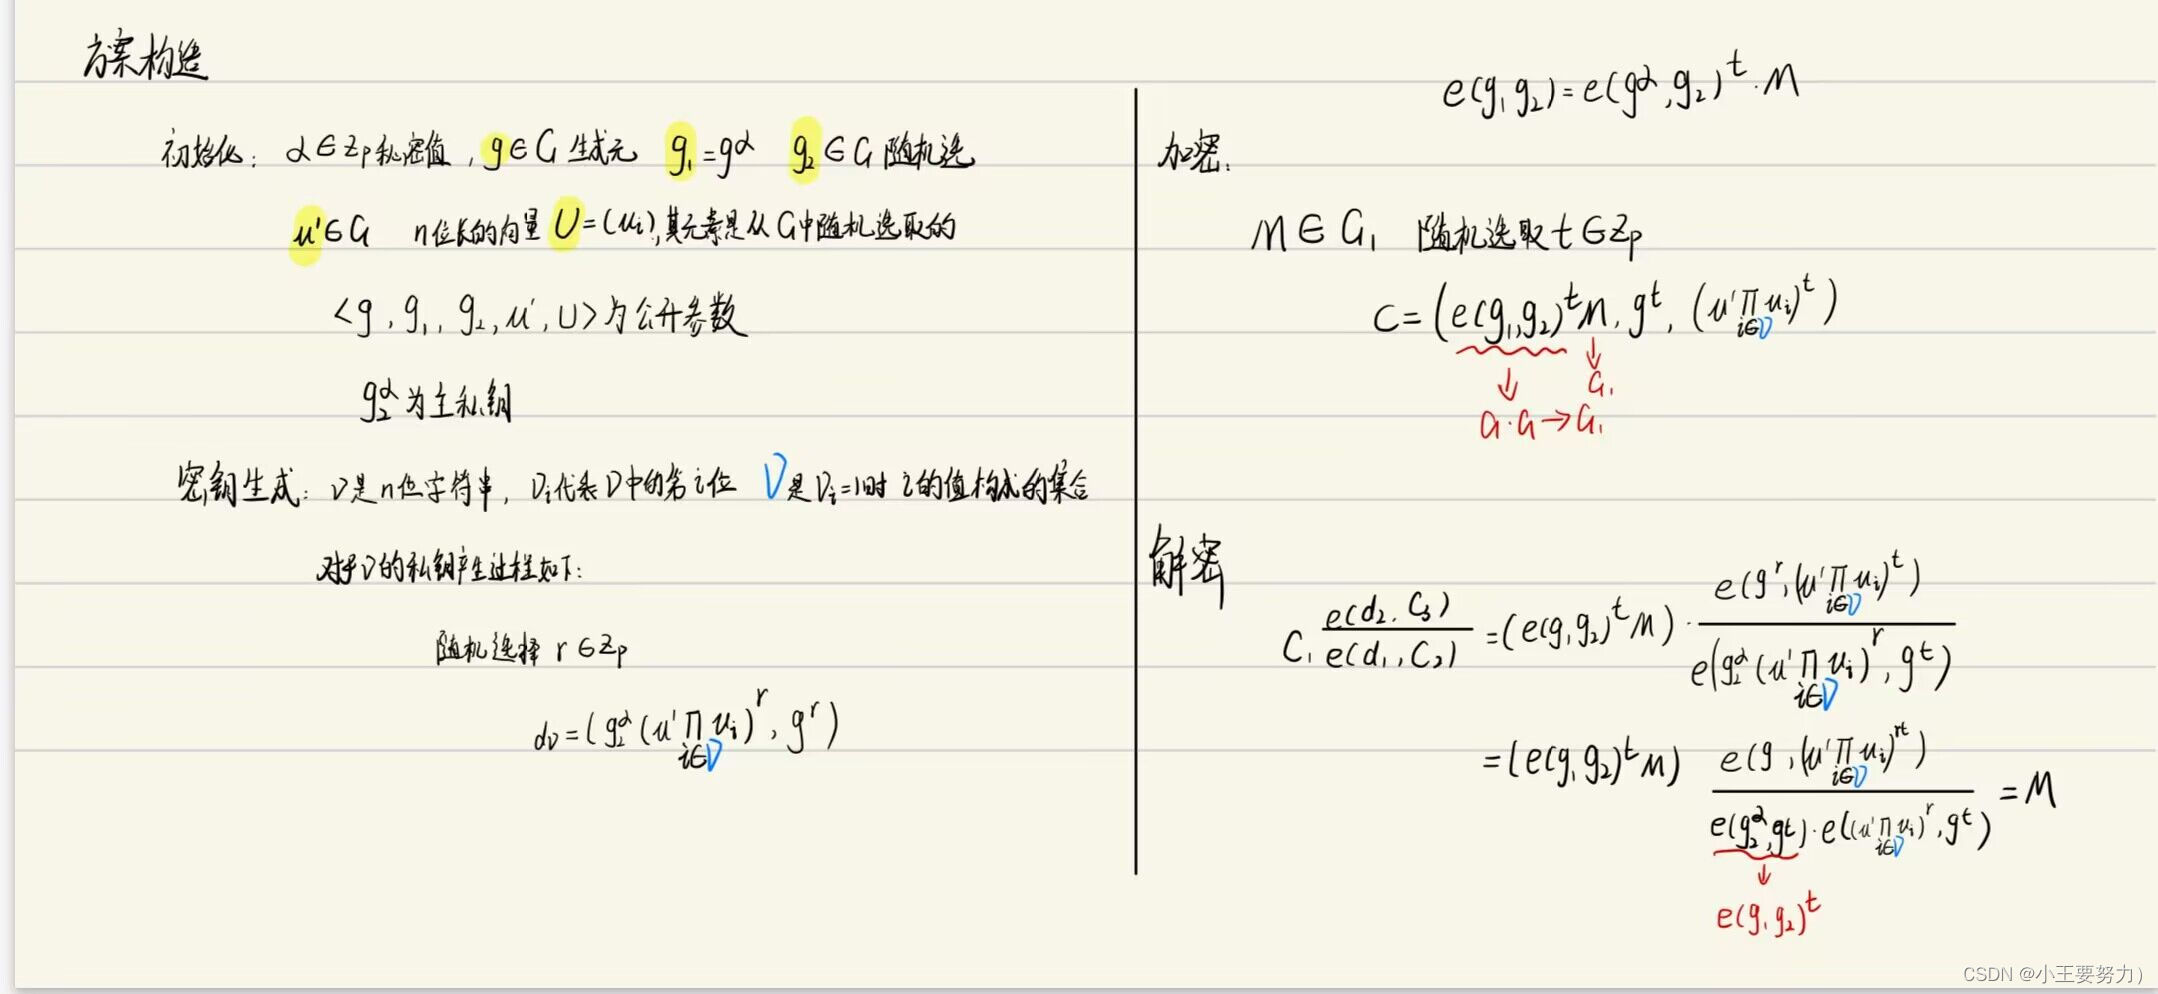 方案构造
初始化: α∈Zp私密值, g∈G 生成元 g₁=g^α g₂∈G 随机选
u'∈G n位长的向量 U=(uᵢ),其元素是从G中随机选取的
<g, g₁, g₂, u', U>为公开参数
g₂^α为主私钥
密钥生成: v是n位字符串, vᵢ代表v中的第i位 V是vᵢ=1时 i的值构成的集合
对于v的私钥产生过程如下:
随机选择 r∈Zp
dv=(g₂^α(u'∏_{i∈V}uᵢ)^r, g^r)
e(g₁g₂)=e(g^α,g₂)^t·M
加密:
M∈G₁ 随机选取t∈Zp
C=(e(g₁,g₂)^t M, g^t, (u'∏_{i∈V}uᵢ)^t)
G₁
G·G→G₁
解密
C₁ e(d₂,C₃)/e(d₁,C₂) =(e(g₁g₂)^t M)·e(g^r,(u'∏_{i∈V}uᵢ)^t)/e(g₂^α(u'∏_{i∈V}uᵢ)^r, g^t)
=(e(g₁g₂)^t M) e(g,(u'∏_{i∈V}uᵢ)^{rt})/e(g₂^α,g^t)·e((u'∏_{i∈V}uᵢ)^r,g^t) =M
e(g₁g₂)^t
CSDN @小王要努力)